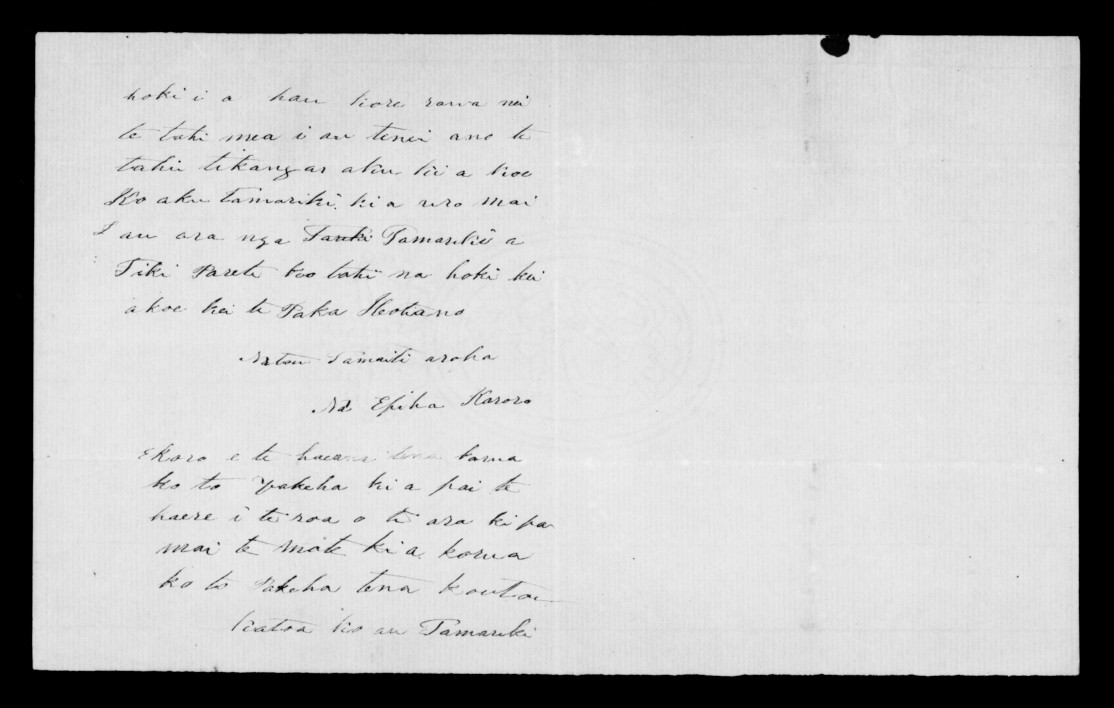 hoki i a hau kore rawa nei
te tahi mea i au tenei ano te
tahii tikangar aku kii a koe
Ko aku tamariki. ki a uro mai
I au ara nga Tariki Tamarikii a
Tiki Parete koo tahi na hoki kei
a koe kei te Paka Heohano
Natou Tamaiti aroha
Na Epiha Karoro
Ekoro e te haeana tena korua
ko to Pakeha ki a pai te
haere i te roa o te ara ki pa
mai te mate ki a korua
ko to Pakeha tena koutou
katoa ko au Tamariki